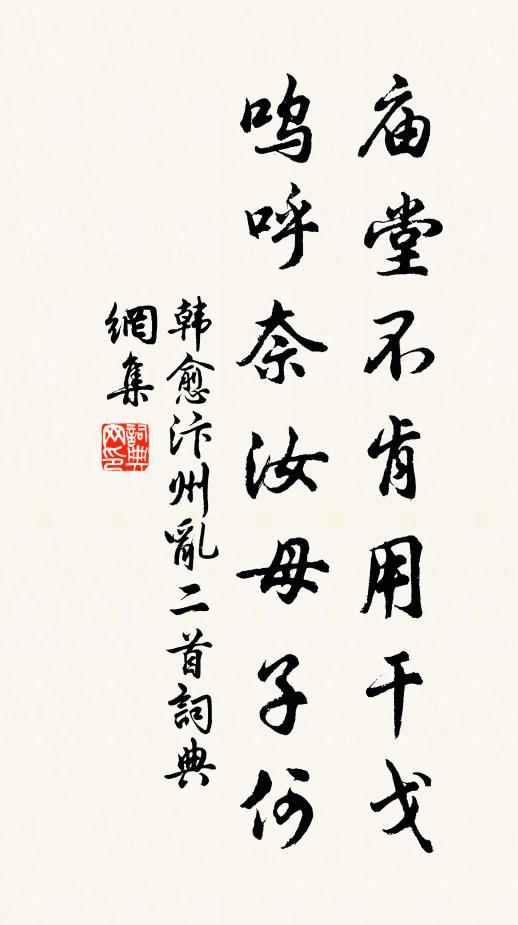 庙堂不肯用干戈
呜呼奈汝母子何
韩愈汴州亂二首詞典
網集
詞典網印